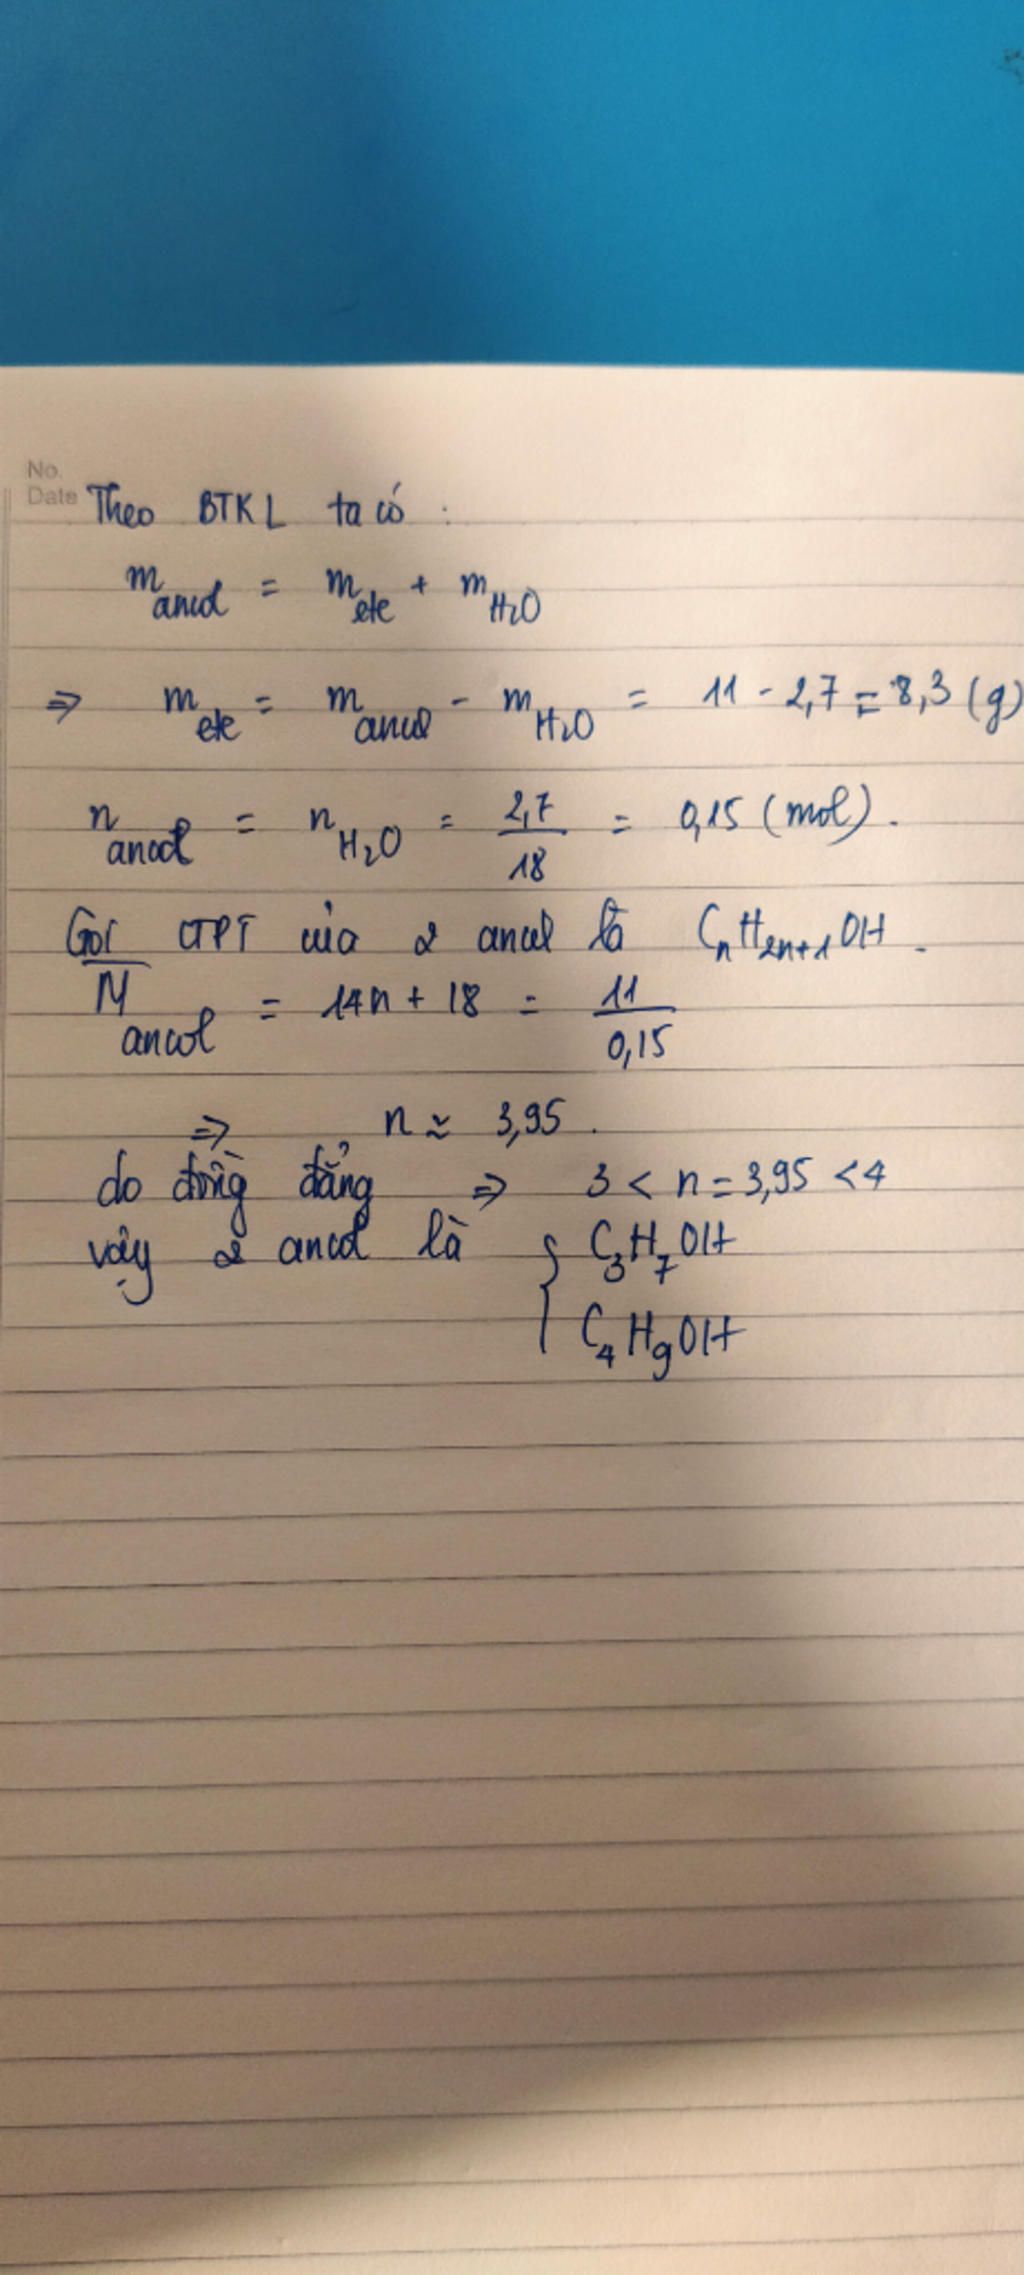 No.
Date
Theo BTKL ta có :
m ancol = m ete + m H2O
⇒ m ete = m ancol - m H2O = 11 - 2,7 = 8,3 (g)
n ancol = n H2O = 2,7/18 = 0,15 (mol).
Gọi CTPT của 2 ancol là CnH2n+1OH.
M̅ ancol = 14n + 18 = 11/0,15
⇒ n ≈ 3,95.
do đồng đẳng ⇒ 3 < n = 3,95 < 4
vậy 2 ancol là { C3H7OH
C4H9OH